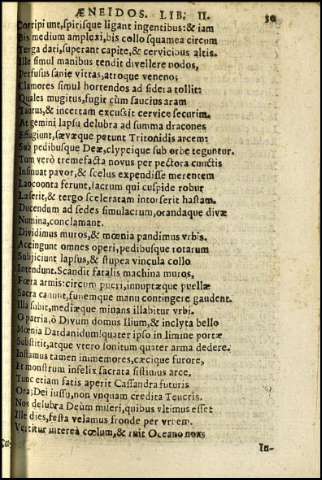 ÆNEIDOS. LIB. II. 30
Corripiunt, spirisque ligant ingentibus: & iam
Bis medium amplexi, bis collo squamea circum
Terga dati, superant capite, & cervicibus altis.
Ille simul manibus tendit divellere nodos,
Perfusus sanie vittas, atroque veneno:
Clamores simul horrendos ad sidera tollit:
Quales mugitus, fugit cùm saucius aram
Taurus, & incertam excussit cervice securim.
At gemini lapsu delubra ad summa dracones
Effugiunt, sævæque petunt Tritonidis arcem:
Sub pedibusque Deæ, clypeique sub orbe teguntur.
Tum verò tremefacta novus per pectora cunctis
Insinuat pavor, & scelus expendisse merentem
Laocoonta ferunt, sacrum qui cuspide robur
Læserit, & tergo sceleratam intorserit hastam.
Ducendum ad sedes simulacrum, orandaque divæ
Numina, conclamant.
Dividimus muros, & mœnia pandimus vrbis.
Accingunt omnes operi, pedibusque rotarum
Subjiciunt lapsus, & stupea vincula collo
Intendunt. Scandit fatalis machina muros,
Fœta armis: circum pueri, innuptæque puellæ
Sacra canunt, funemque manu contingere gaudent.
Illa subit, mediæque minans illabitur vrbi.
O patria, ô Divum domus Ilium, & inclyta bello
Mœnia Dardanidum! quater ipso in limine portæ
Substitit, atque vtero sonitum quater arma dedere.
Instamus tamen immemores, cæcique furore,
Et monstrum infelix sacrata sistimus arce.
Tunc etiam fatis aperit Cassandra futuris
Ora; Dei iussu, non vnquam credita Teucris.
Nos delubra Deùm miseri, quibus vltimus esset
Ille dies, festa velamus fronde per vrbem.
Vertitur interea cœlum, & ruit Oceano nox
In-